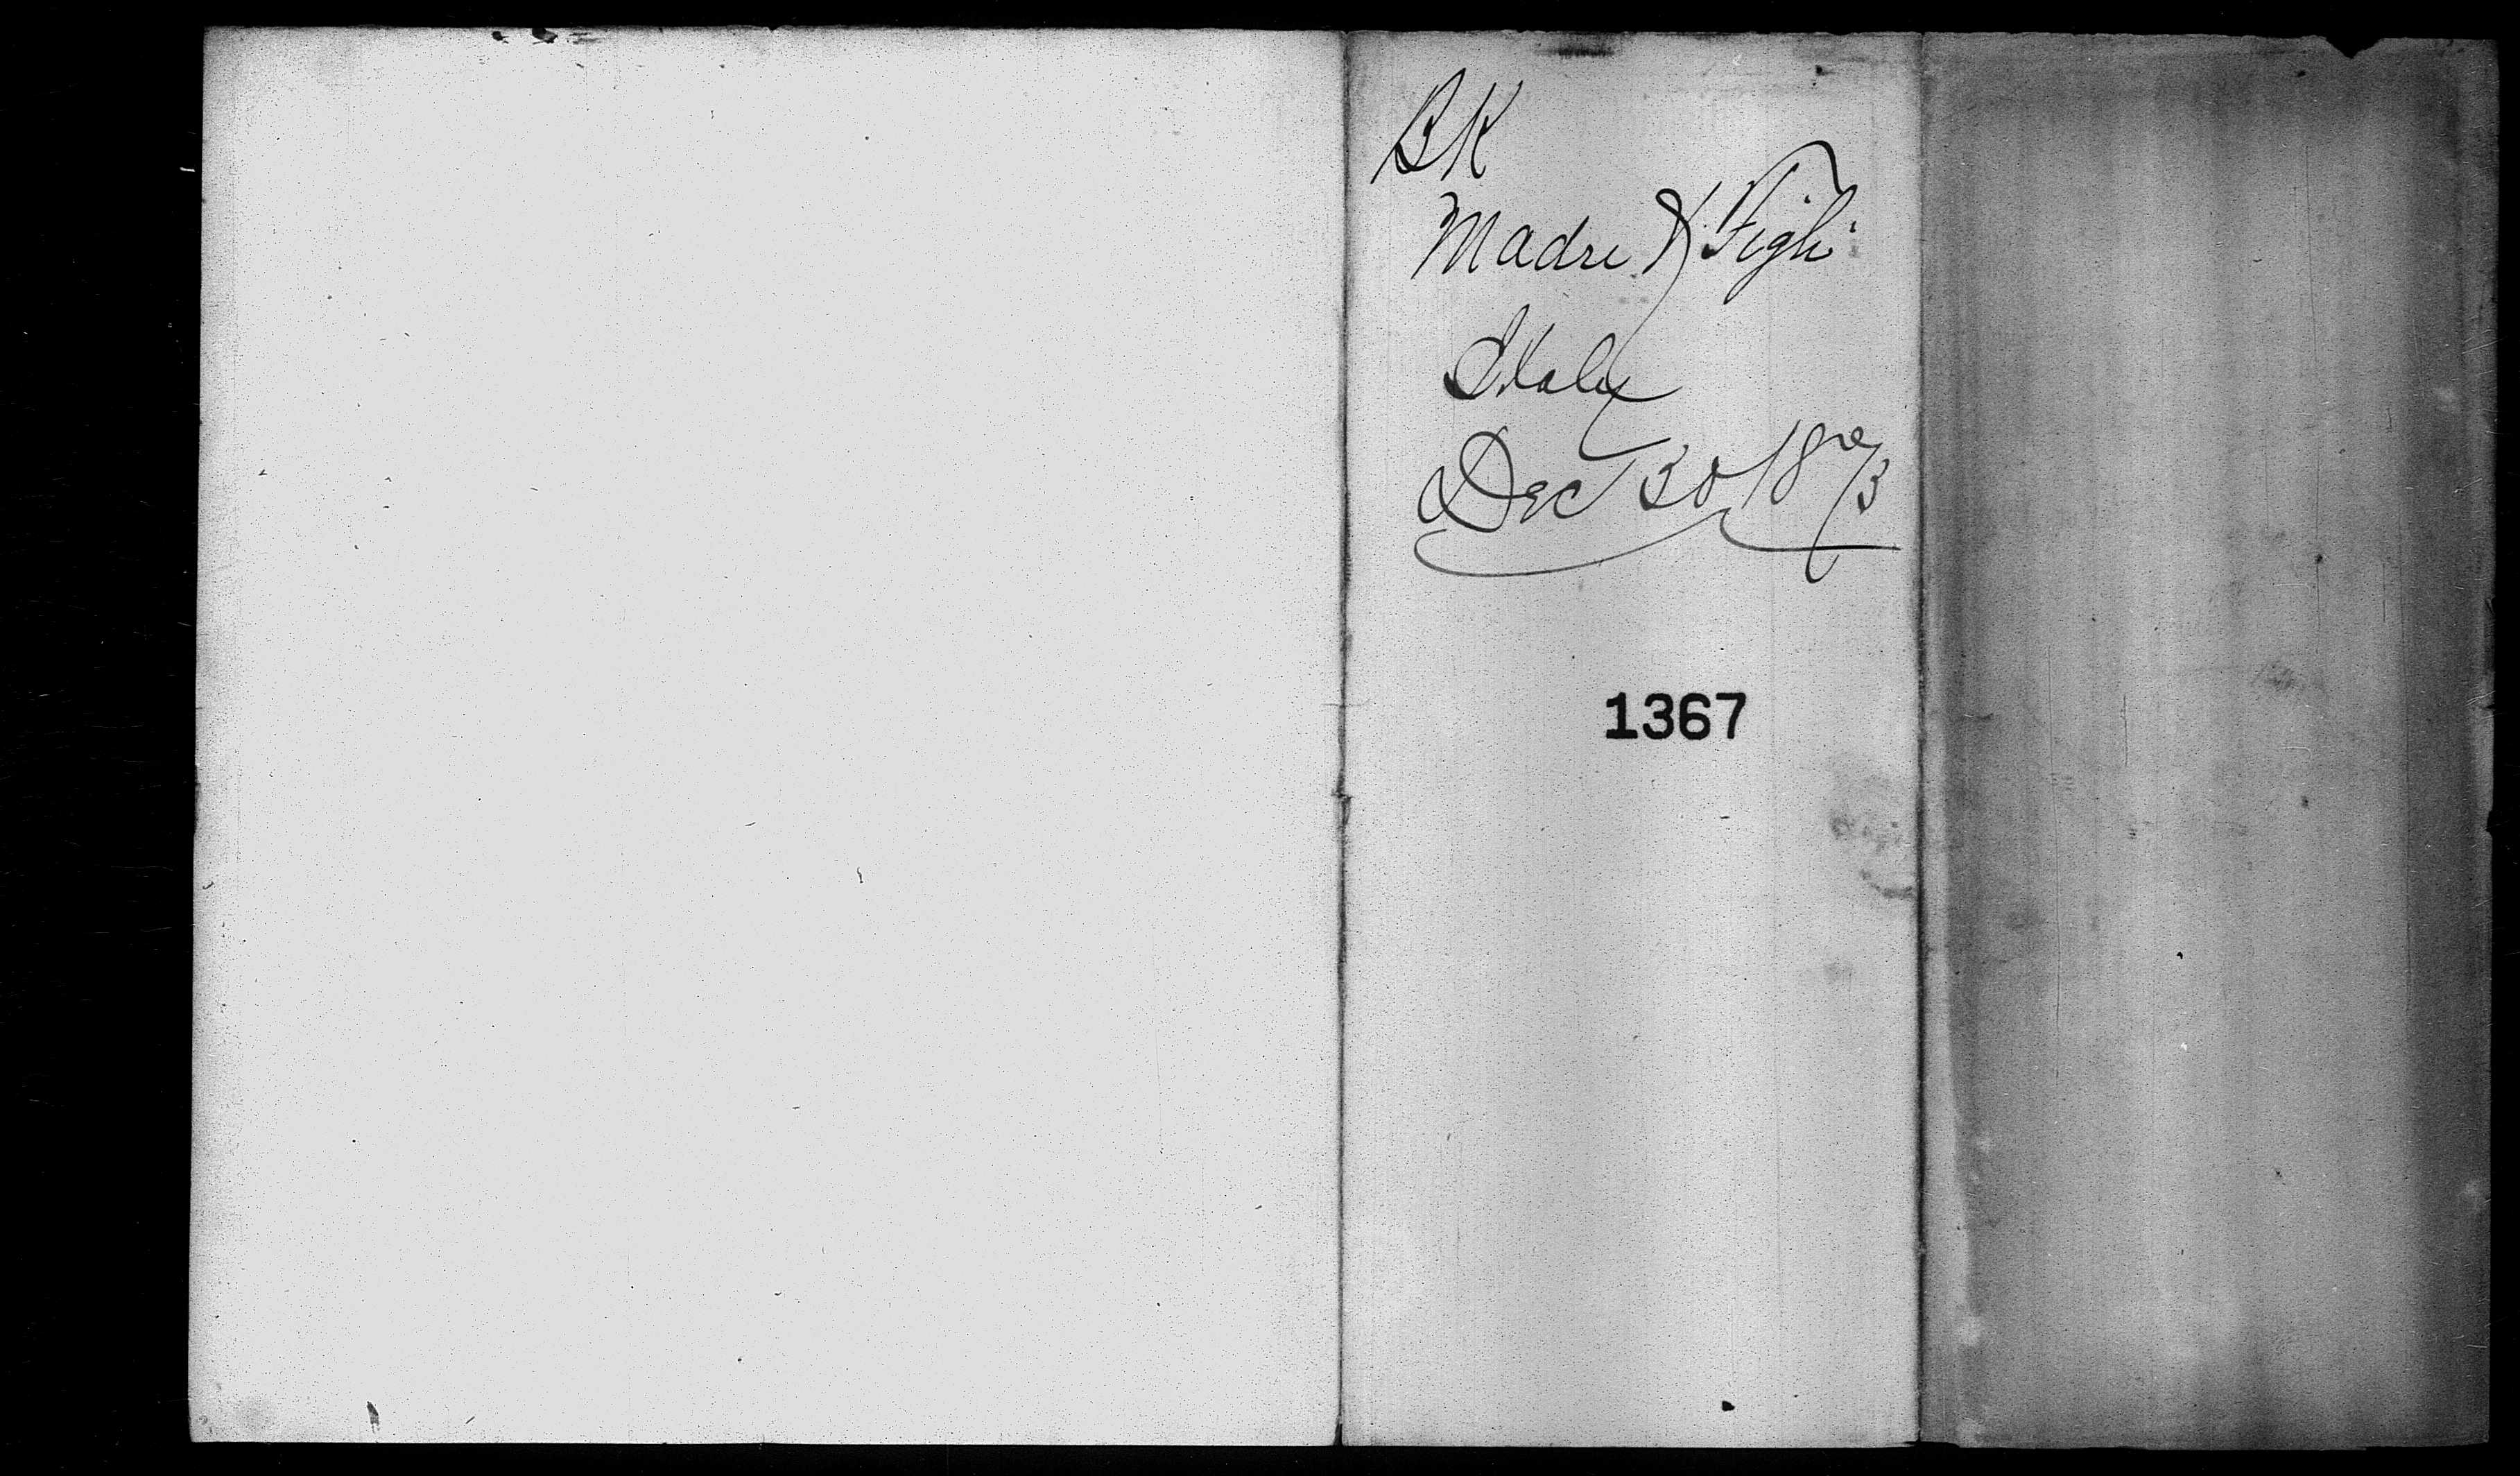 BK
Madre & Figli
Italy
Dec 30 1873
1367